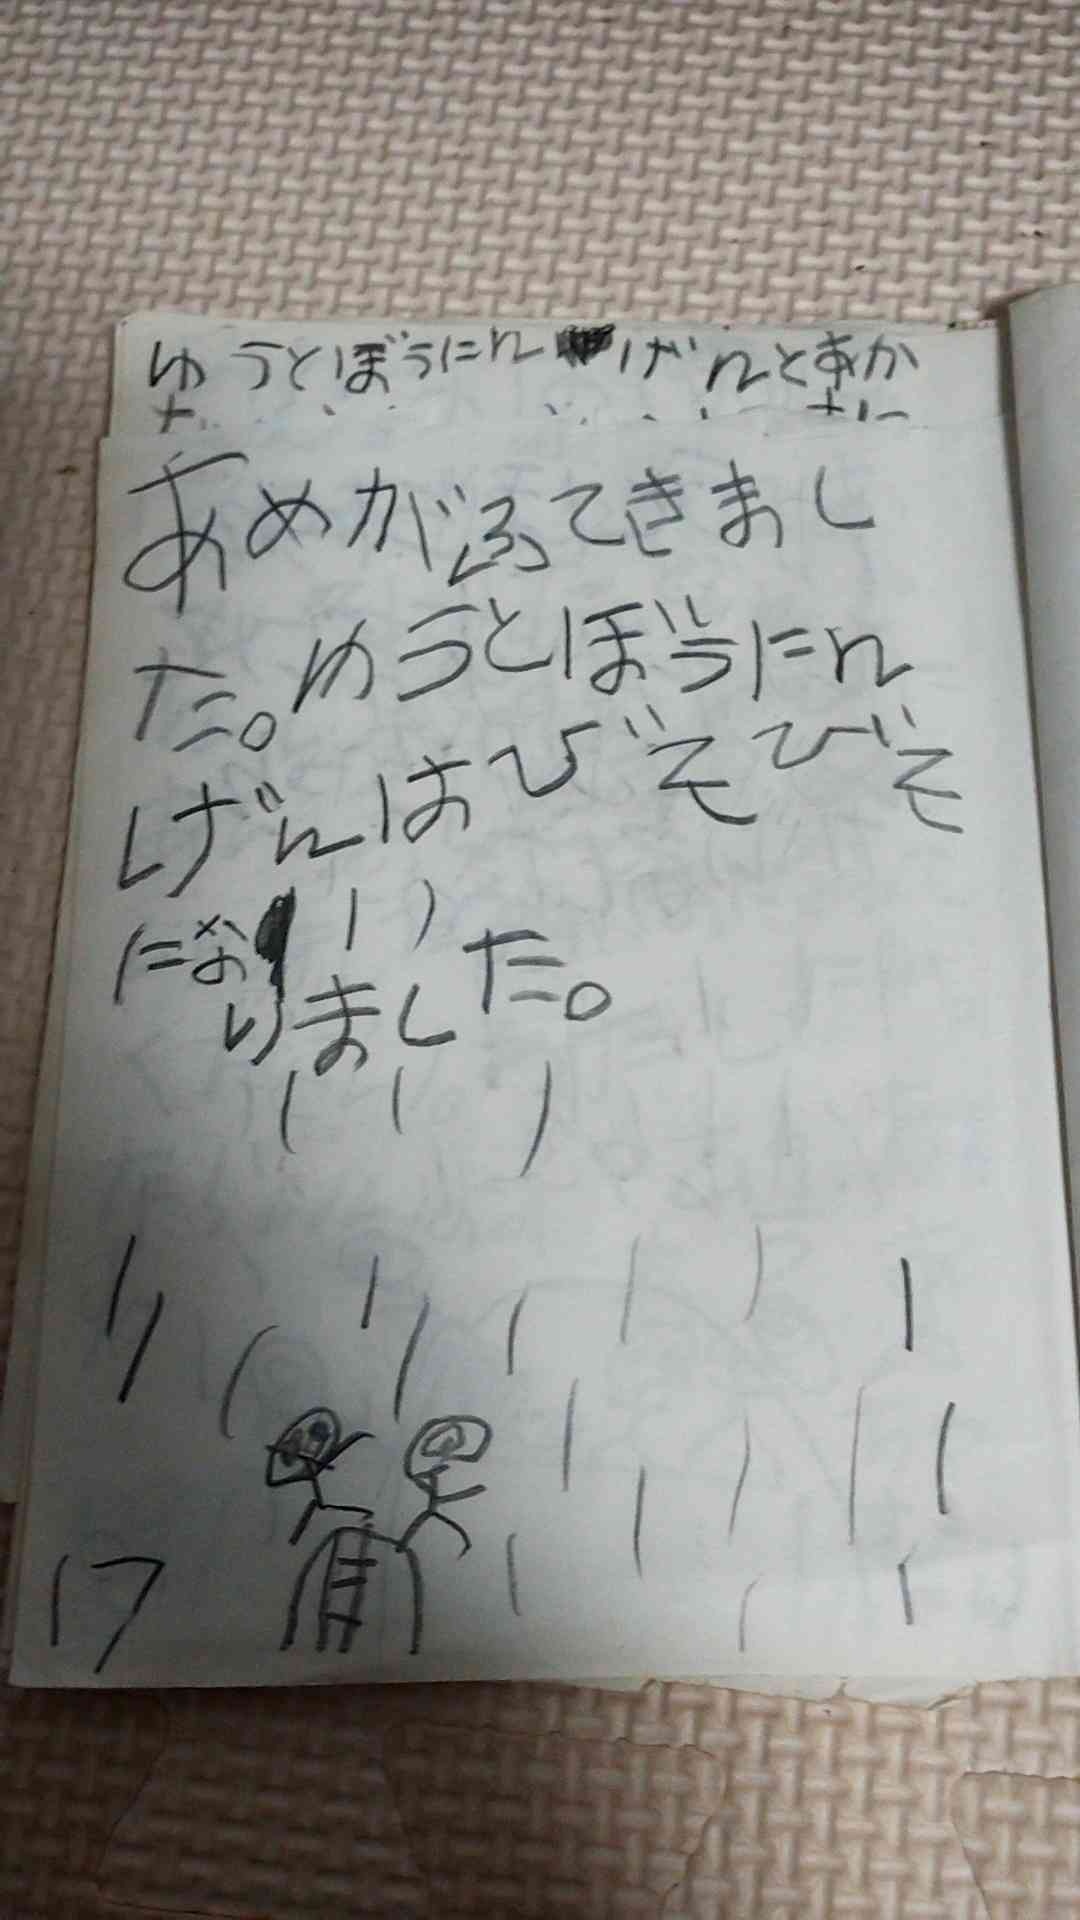 ゆうとぼうにんげんとあか
あめがふてきまし
た。ゆうとぼうにん
げんはびそびそ
になりました。
17